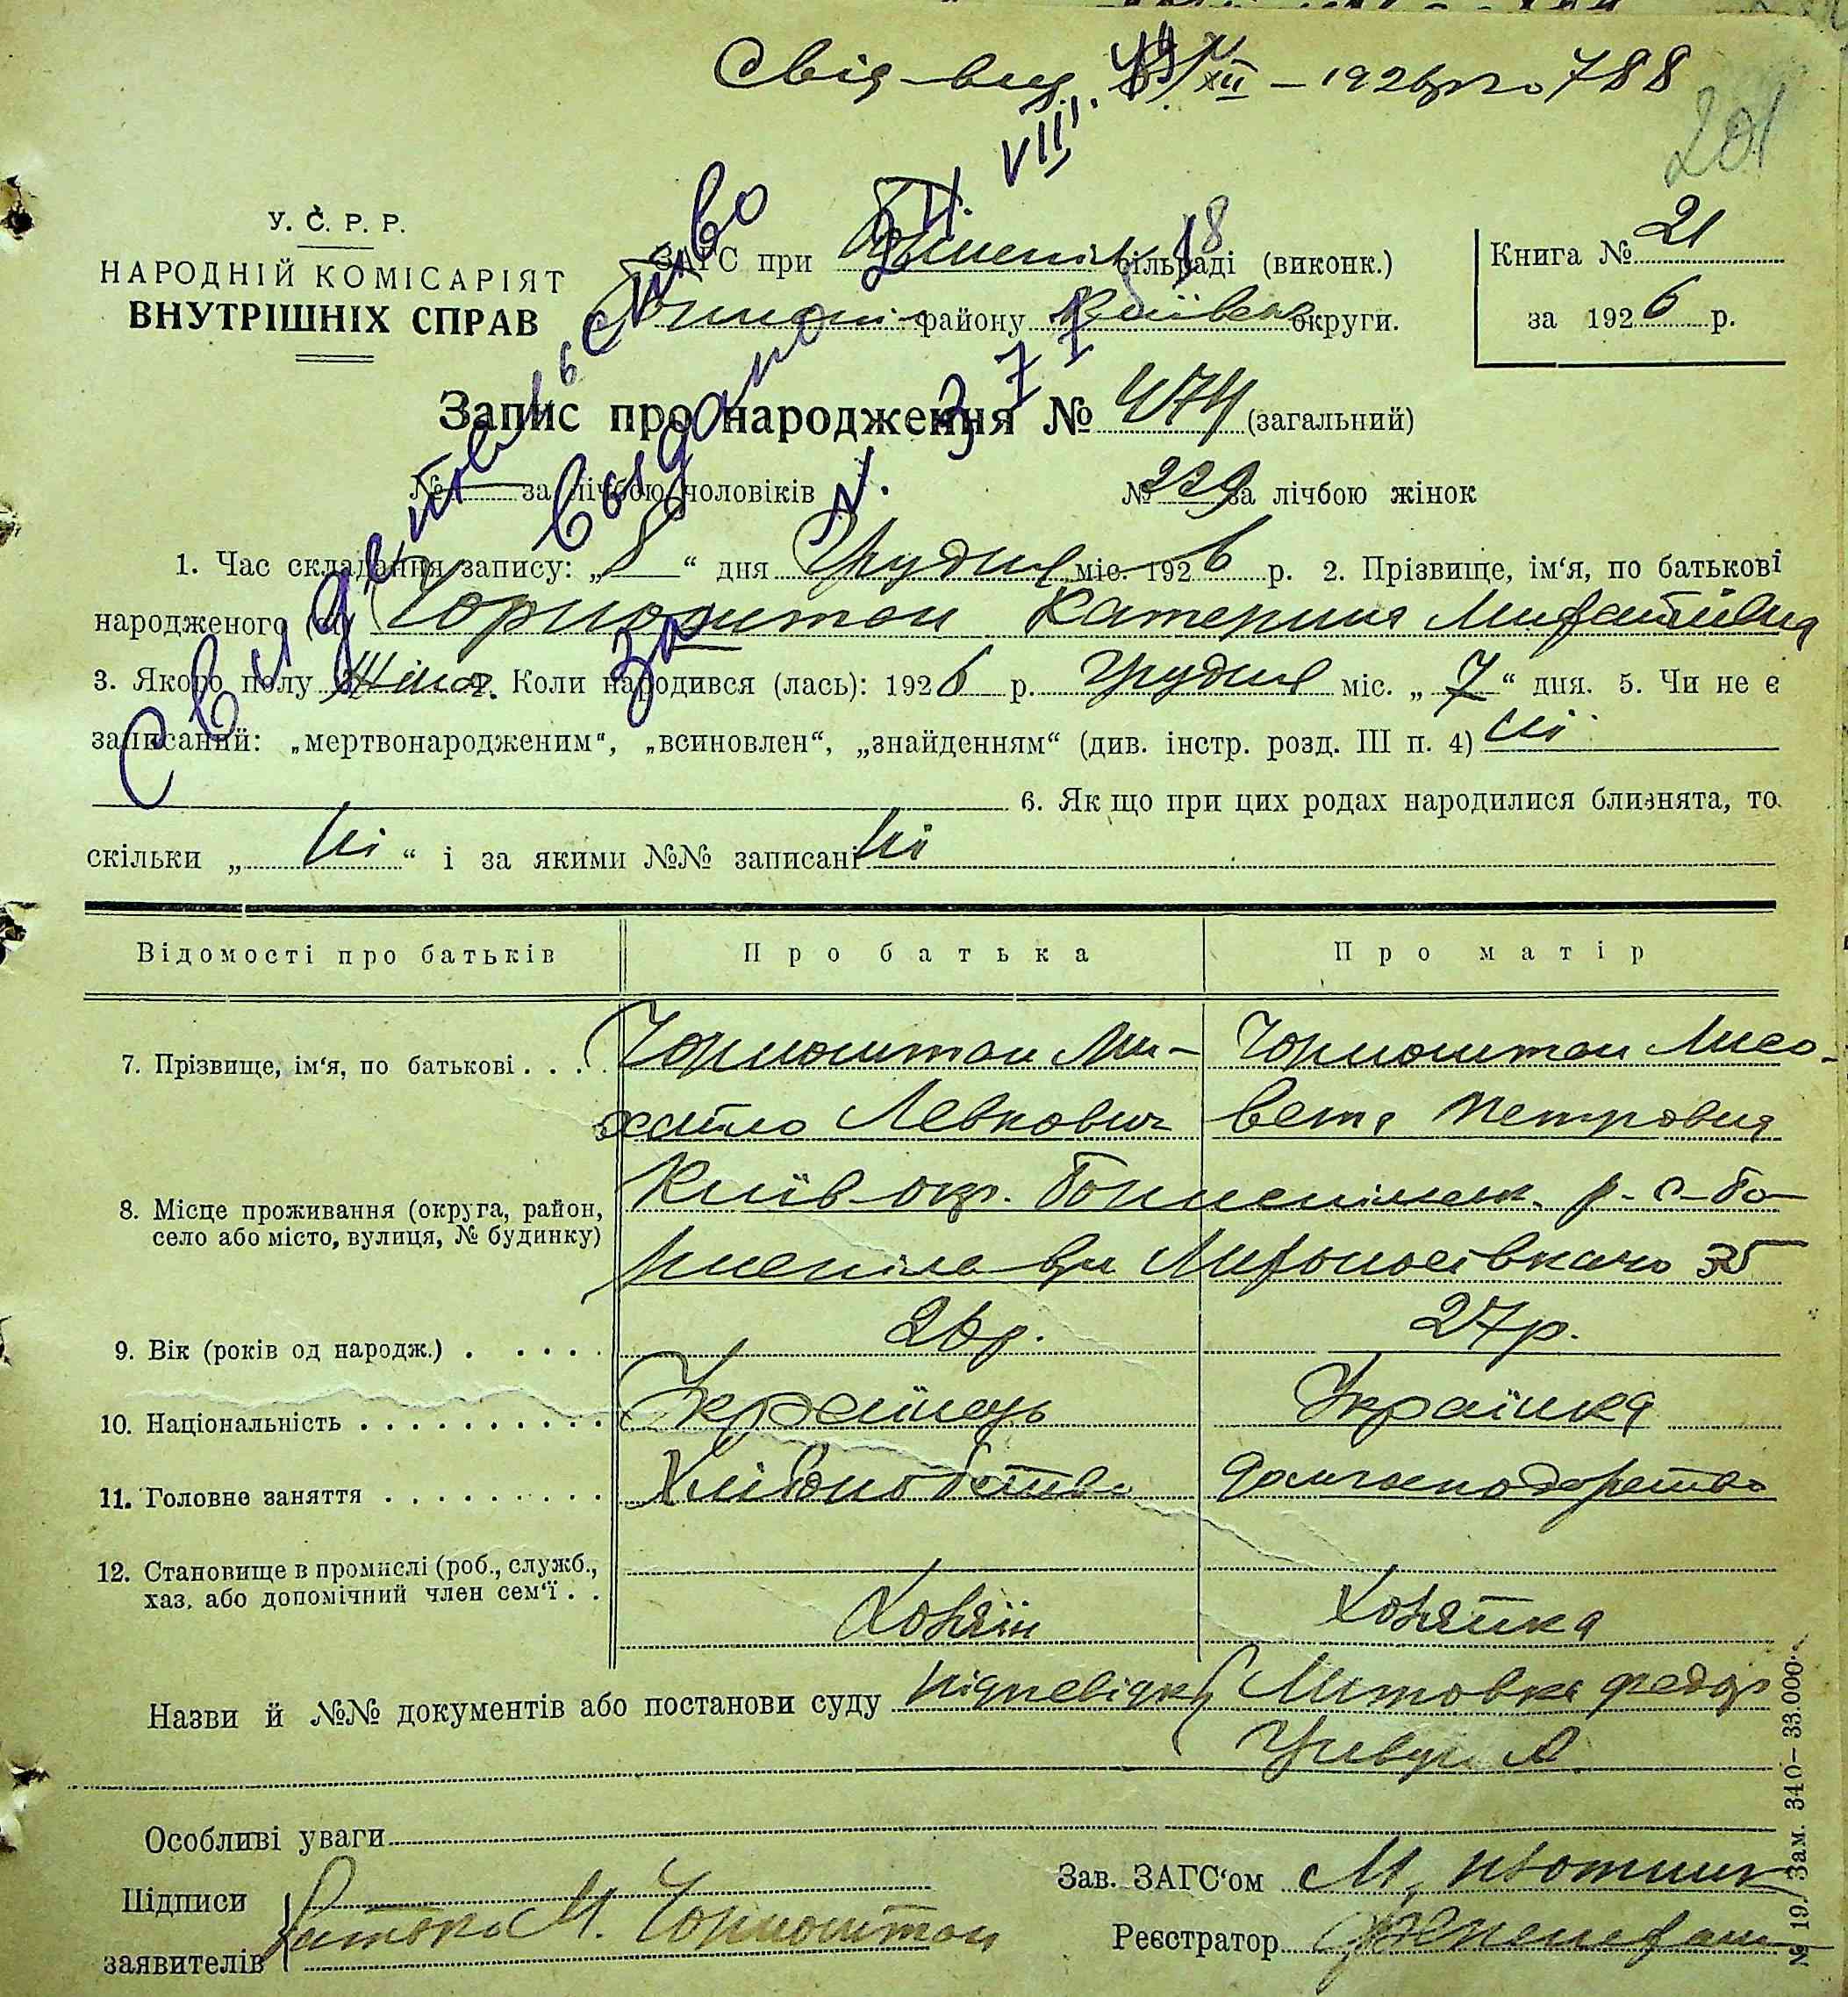 Свід. вид. XII – 1926 р. № 788
201
У. С. Р. Р.
НАРОДНІЙ КОМІСАРІЯТ
ВНУТРІШНІХ СПРАВ
ЗАГС при сільраді (виконк.)
району Київськ округи.
Книга № 21
за 1926 р.
Свидетельство
выдано
за N. 371
VII
Запис про народження № 474 (загальний)
№ за лічбою чоловіків
№ 229 за лічбою жінок
1. Час складання запису: „ 8 “ дня Грудня міс. 1926 р. 2. Прізвище, ім‘я, по батькові
народженого (ої) Чорноштан Катерина Михайлівна
3. Якого полу Жіноч. Коли народився (лась): 1926 р. Грудня міс. „ 7 “ дня. 5. Чи не є
записаний: „мертвонародженим“, „всиновлен“, „знайденням“ (див. інстр. розд. III п. 4) Ні
6. Як що при цих родах народилися близнята, то
скільки „ Ні “ і за якими №№ записані Ні
Відомості про батьків Про батька Про матір
7. Прізвище, ім‘я, по батькові . . . . Чорноштан Ми- Чорноштан Лисо-
хайло Левкович вета Петровна
8. Місце проживання (округа, район, Київ окр. Бориспільськ. р. с. Бо-
село або місто, вулиця, № будинку) риспіль вул 35
9. Вік (років од народж.) . . . . . 26 р. 27 р.
10. Національність . . . . . . . . . . Українець Українка
11. Головне заняття . . . . . . . . . Хліборобство домгосподарство
12. Становище в промислі (роб., служб.,
хаз. або допомічний член сем‘ї . . Хазяїн Хазяйка
Назви й №№ документів або постанови суду
Особливі уваги
Підписи
заявителів Батько М. Чорноштан
Зав. ЗАГС‘ом М.
Реєстратор
№ 19. Зам. 340–33.000.